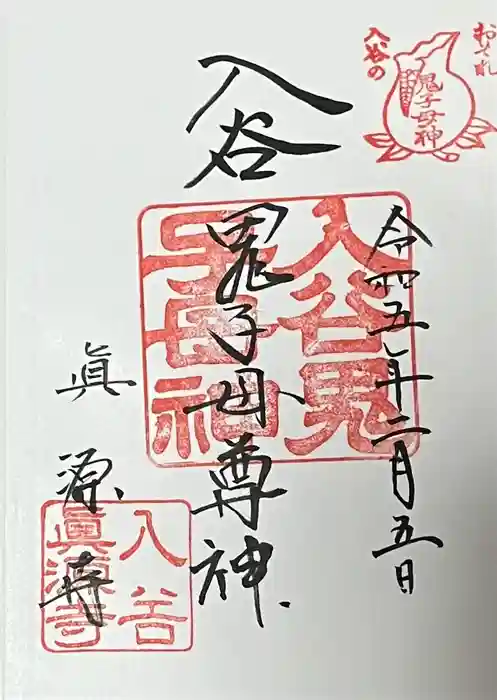 おそれ
入谷の
鬼子母神
令和五年二月五日
入谷鬼子母尊神
入谷鬼
子母神
眞源寺
入谷
眞源寺